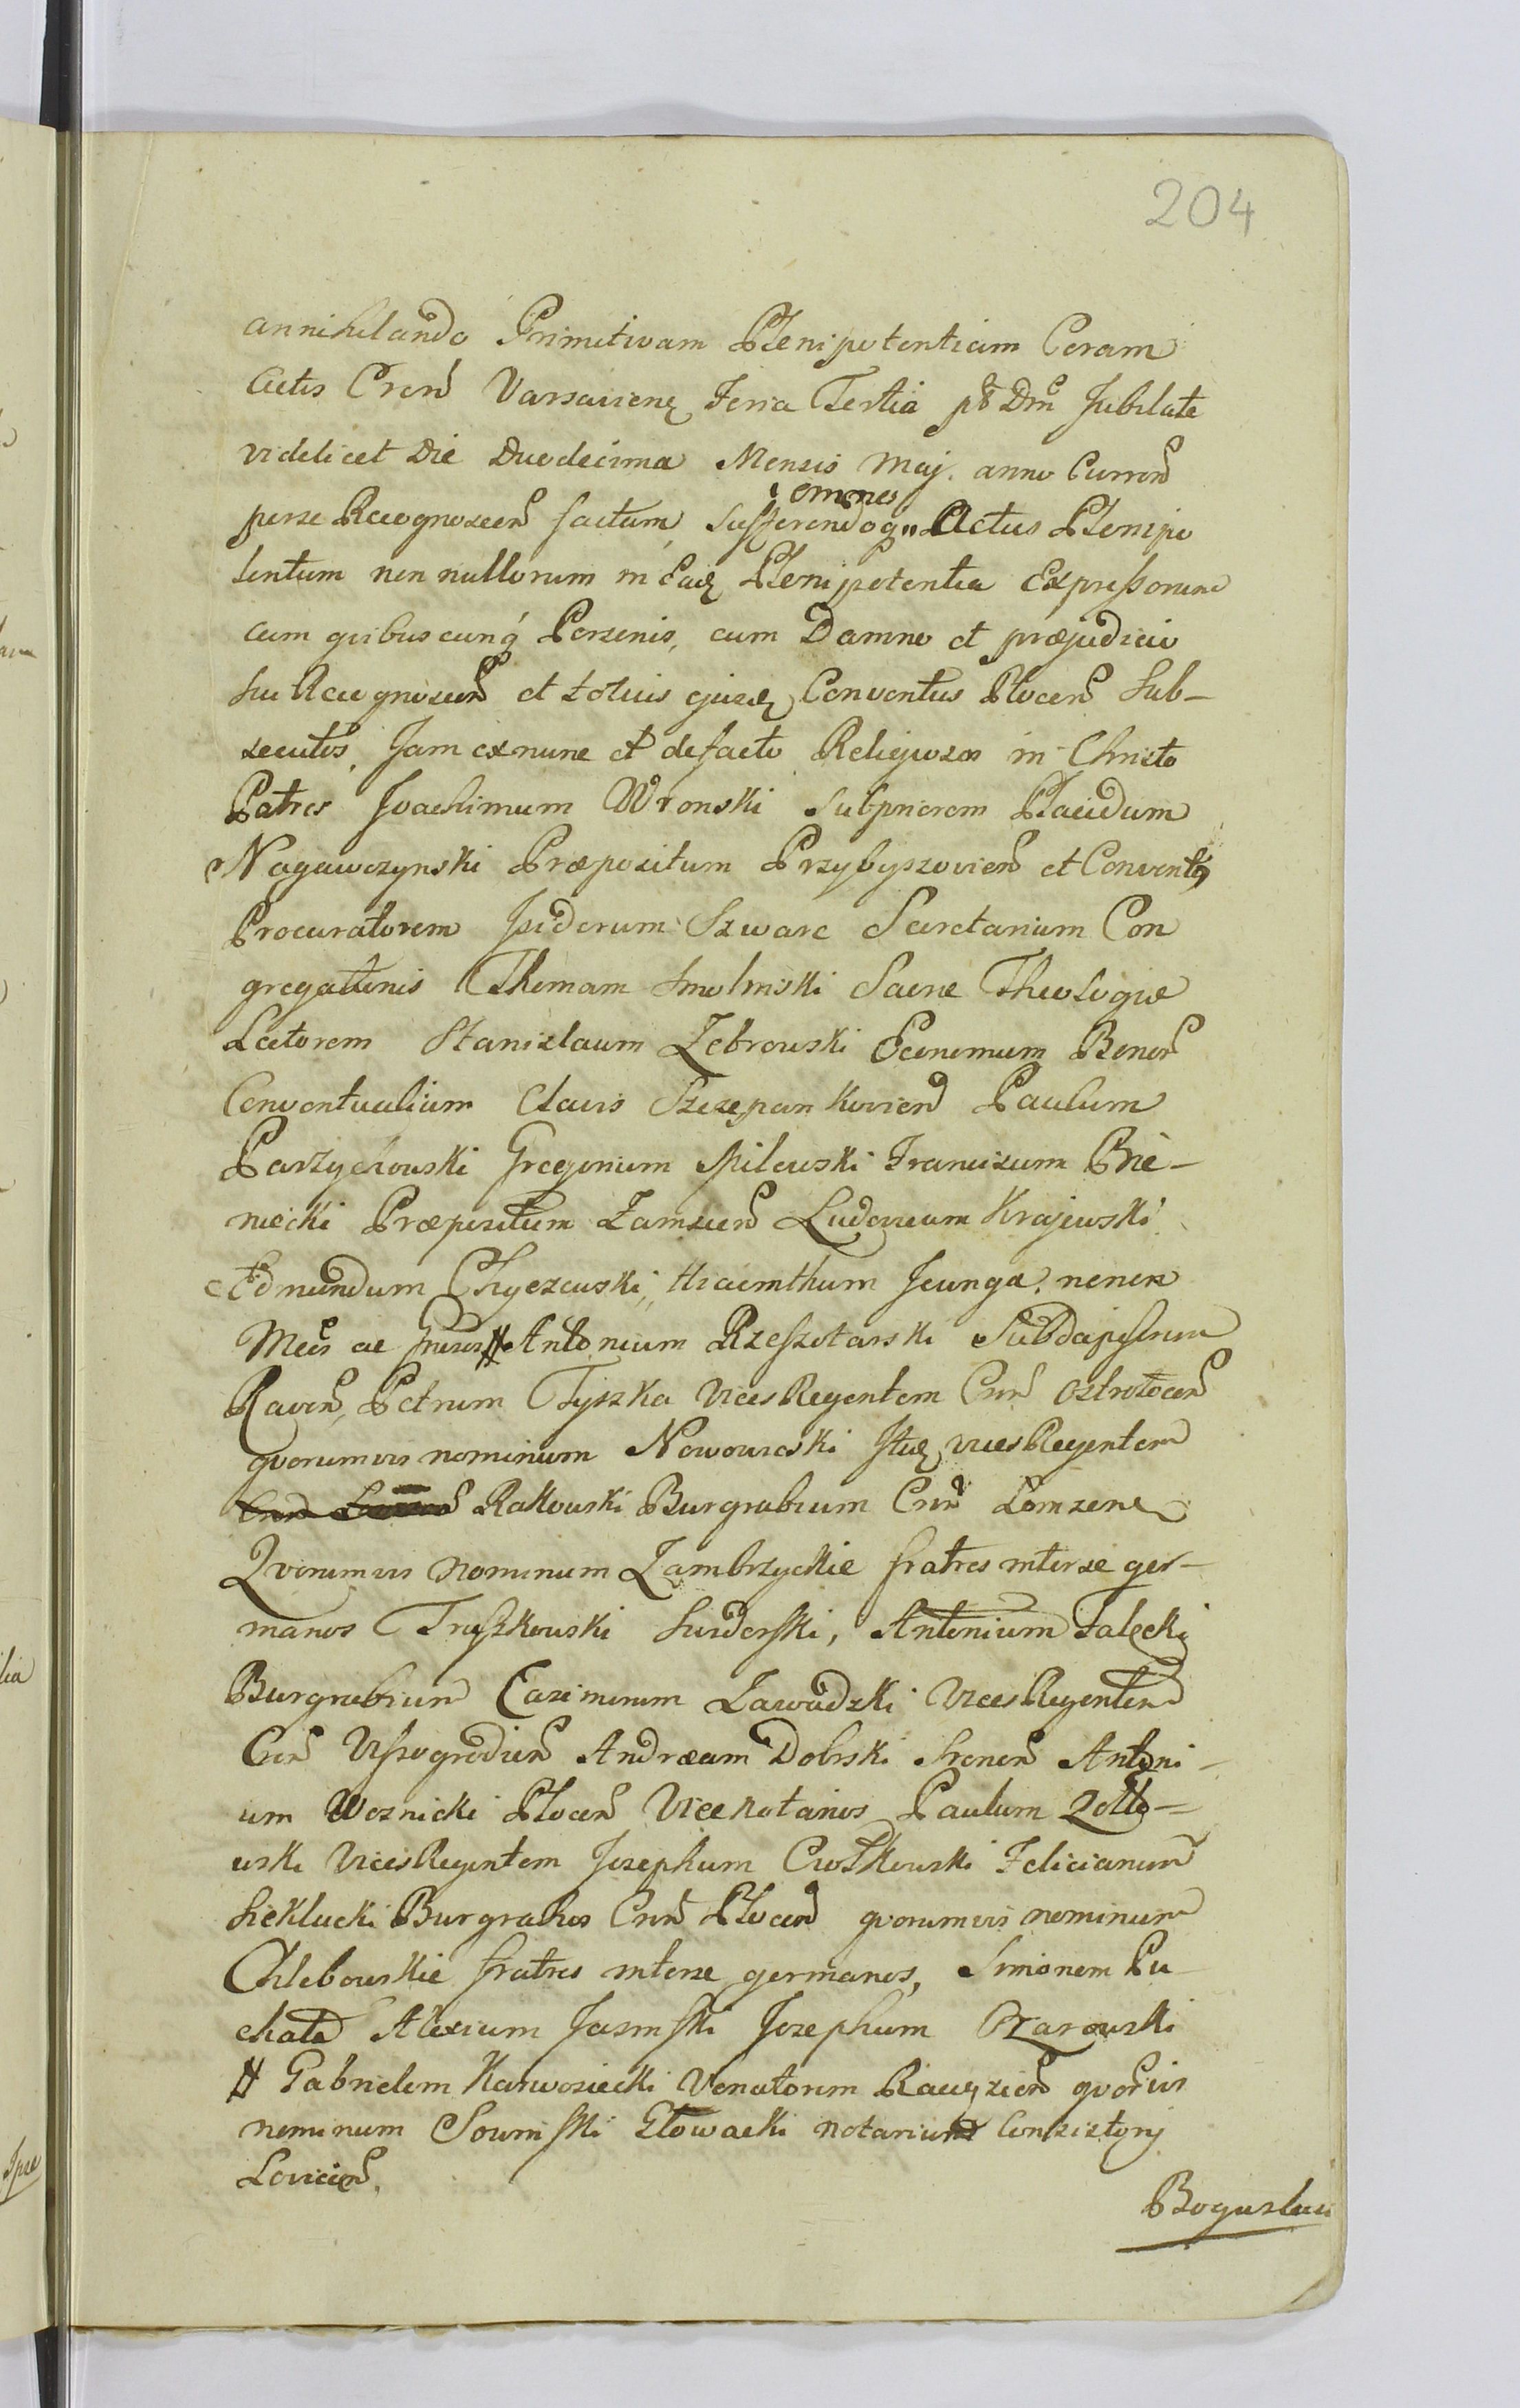 204
annihilando Primitivam Plenipotentiam Coram
Actis Cren Varsavien Feria Tertia pt Dm Jubilate
videlicet Die Duodecima Mensis Maj. anno Curren
perse Recognoscen factam, sufferendoq
omnes
Actus Plenipo
tentum non nullorum in Ead Plenipotentia Expressorum
cum quibuscunq Personis, cum Damno et præjudicio
sui Recognoscen et totius ejusd Conventus Plocen Sub-
secutos, Jam exnunc et defacto Religiosos in Christo
Patres Joachimum Wronski Subpriorem Placidum
Nagawczynski Præpositum Przybyszovien et Convent
Procuratorem Isidorum Szwarc Secretarium Con
gregationis Thomam Smolinski Sacræ Theologiæ
Lectorem Stanislaum Zebrowski Œconomum Bonor
Conventualium Clavis Szczepankovien Paulum
Parzychowski Gregorium Milewski Franciscum Brie-
niecki Præpositum Zamscen Ludovicum Krajewski
Edmundum Chyczewski, Hiacinthum Jeunga. nenen
Antonium Rzeszotarski Subdapiferum
Raven, Petrum Tyszka Vices Regentem Cnn Ostrolecen
quorumvis nominum Nowowieski Itid vices Regentem
Rakowski Burgrabium Cnn Lomzene
Quorumvis Nominum Zambrzyckie fratres interse ger-
manos Truszkowski Surderski, Antonium Falęcki
Burgrabium Casimirum Zawadzki Vices Regentem
Cren Vissogrodien Andræam Dobrski Srenen Antoni-
um Woznicki Plocen Vicenotarios Paulum Zotto=
wski Vices Regentem Josephum Cwotkowski Felicianum
Sieklucki Burgrabios Cnn Plocen quorumvis nominum
Chlebowskie fratres interse germanos, Simonem Pu
chata Alexium Jasinski Josephum Ozarowski
# Gabrielem Karwosiecki Venatorem Raciązien quorvis
nominum Sowinski Głowacki Notarium Consistorj
Lovicien.
Boguslaus